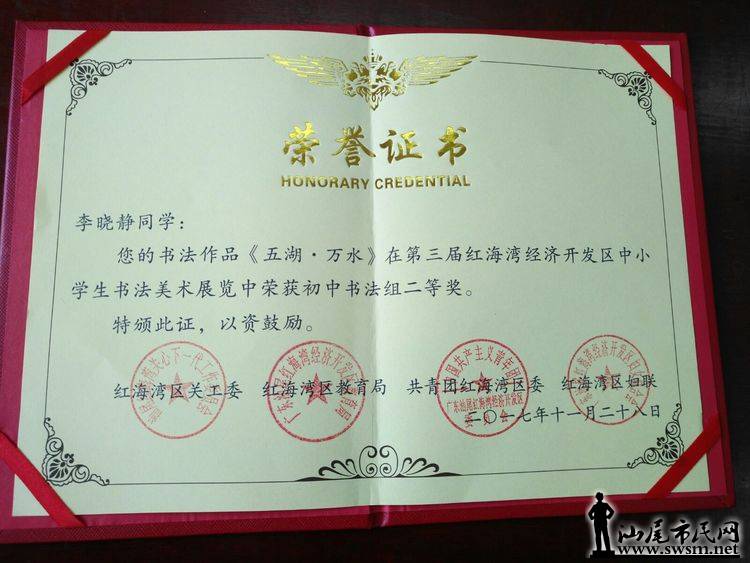 荣誉证书
HONORARY CREDENTIAL
李晓静同学：
您的书法作品《五湖·万水》在第三届红海湾经济开发区中小
学生书法美术展览中荣获初中书法组二等奖。
特颁此证，以资鼓励。
红海湾区关工委 红海湾区教育局 共青团红海湾区委 红海湾区妇联
广东汕尾红海湾经济开发区
二〇一七年十一月二十八日
汕尾市民网
www.swsm.net